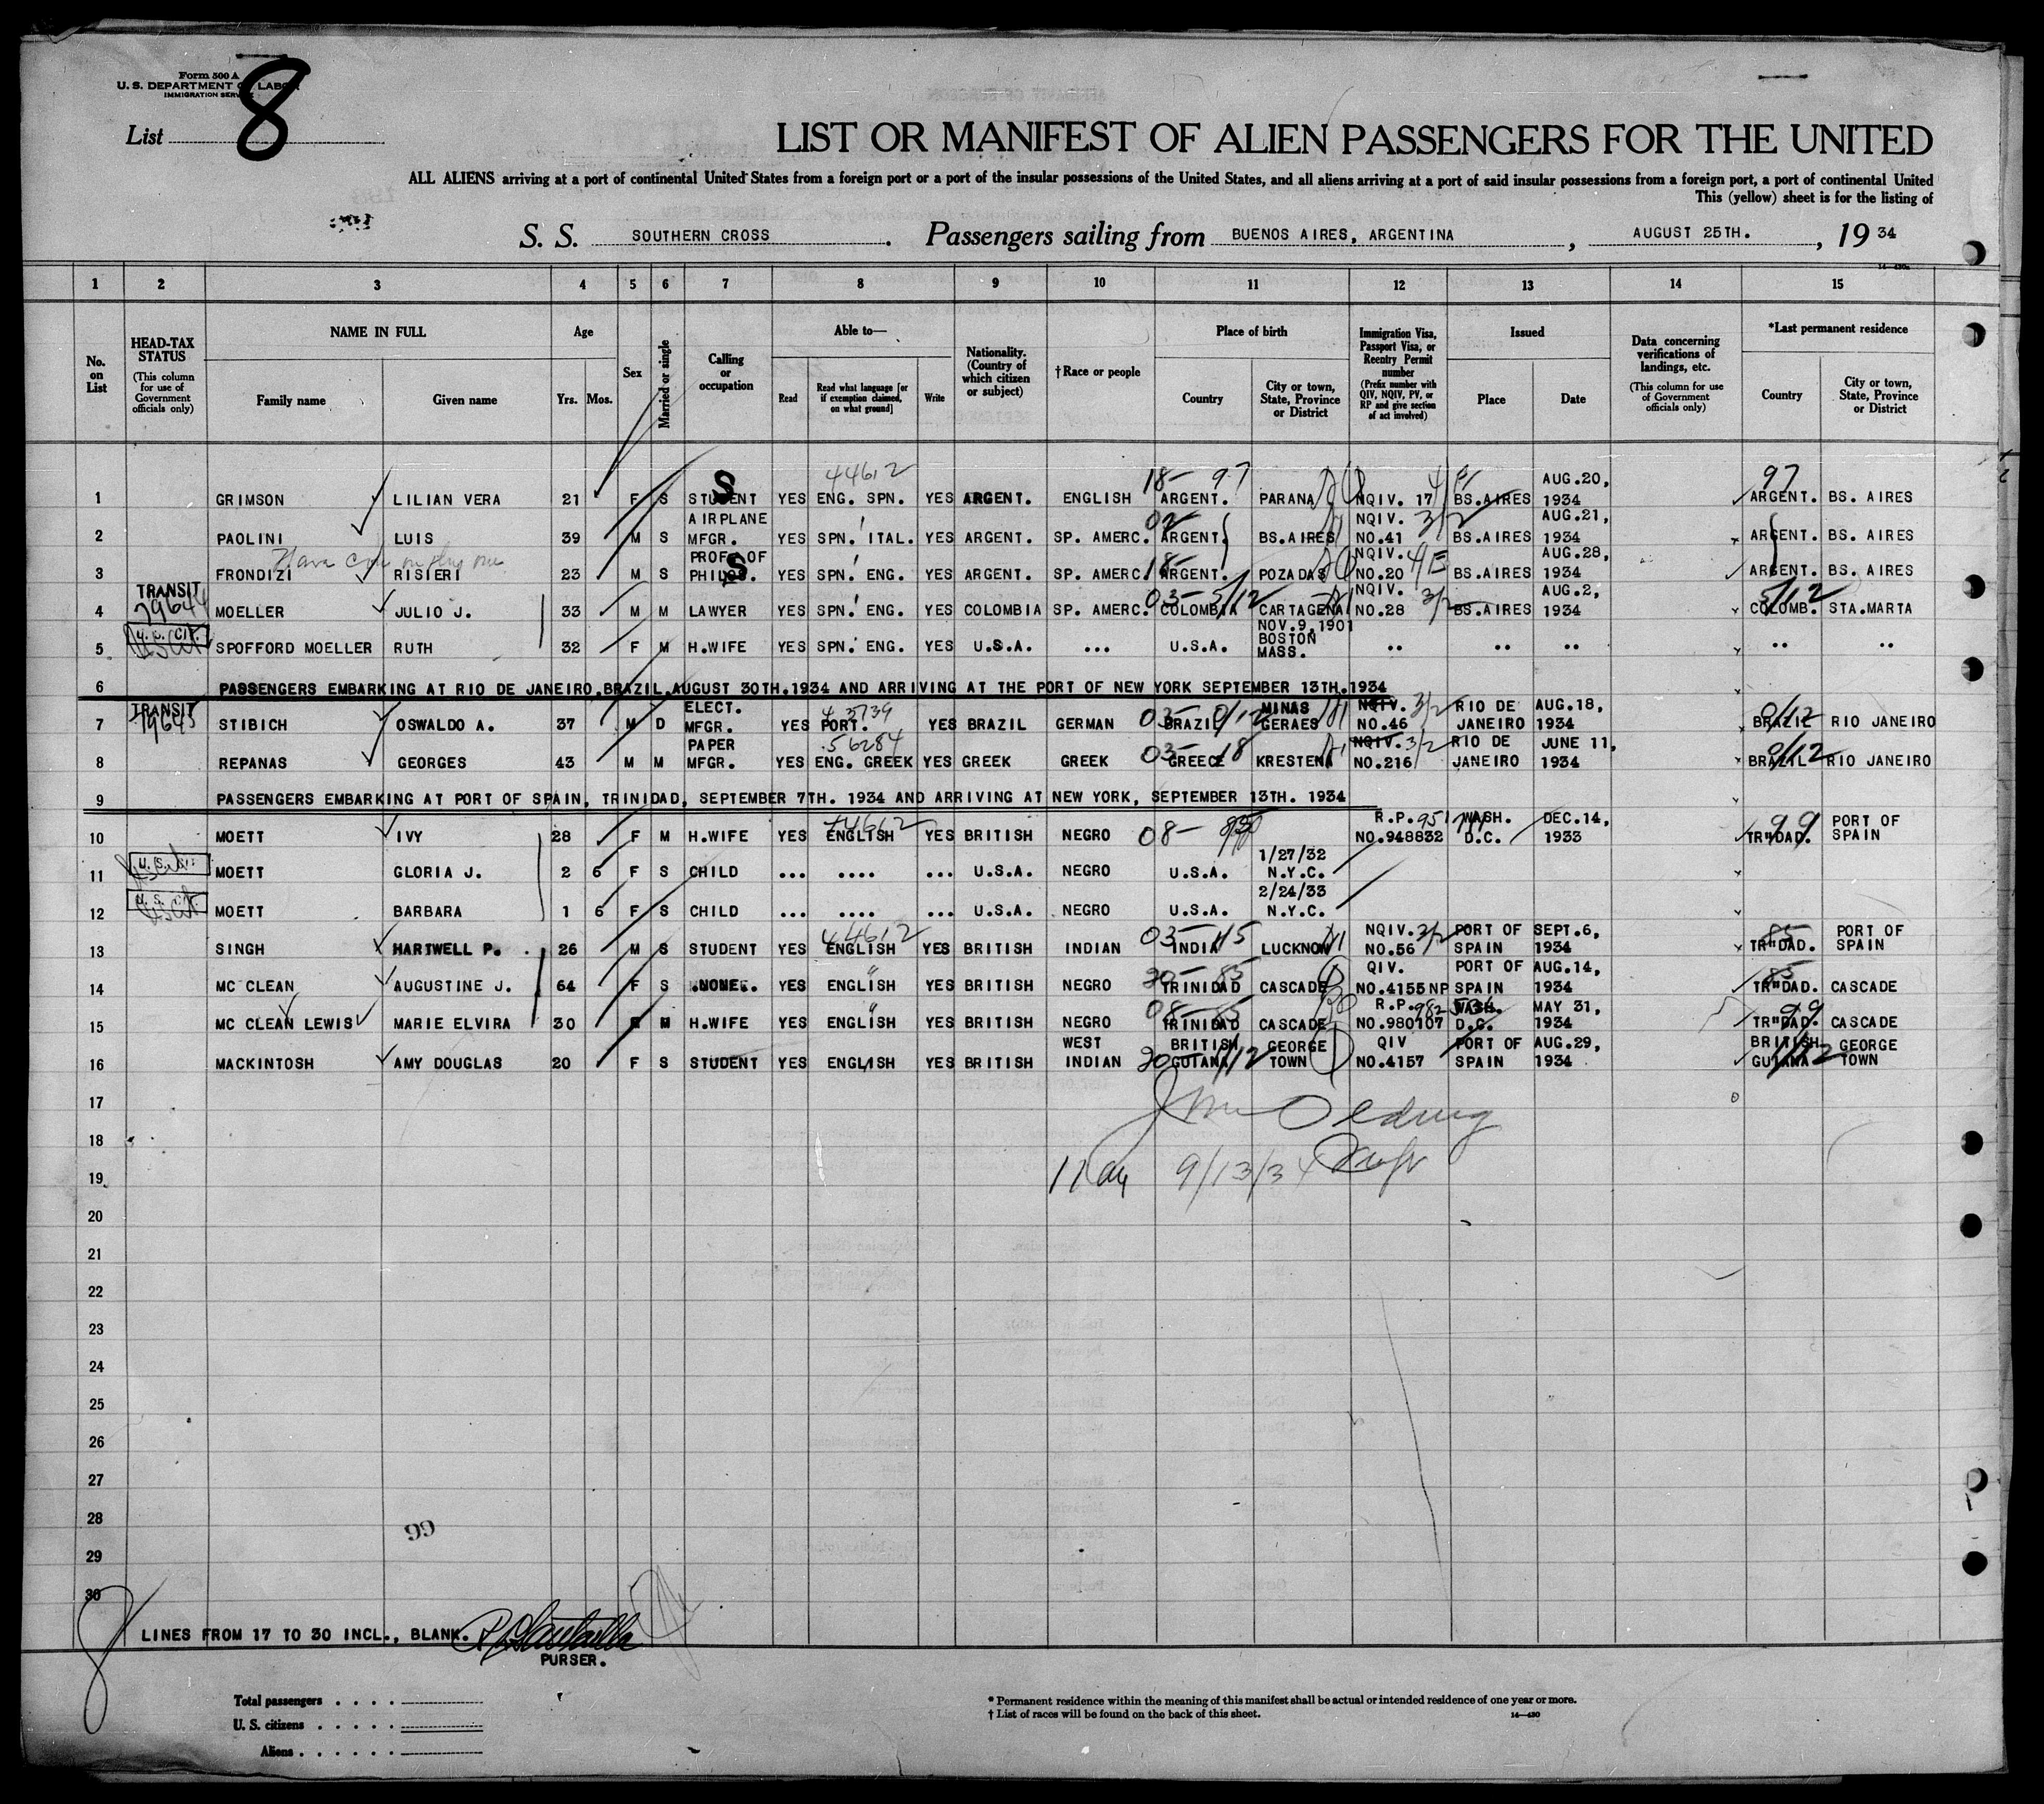 Form 500 A
U. S. DEPARTMENT OF LABOR
IMMIGRATION SERVICE
List 8
LIST OR MANIFEST OF ALIEN PASSENGERS FOR THE UNITED
ALL ALIENS arriving at a port of continental United States from a foreign port or a port of the insular possessions of the United States, and all aliens arriving at a port of said insular possessions from a foreign port, a port of continental United
This (yellow) sheet is for the listing of
S. S. SOUTHERN CROSS. Passengers sailing from BUENOS AIRES, ARGENTINA, AUGUST 25TH., 19 34
1 2 3 4 5 6 7 8 9 10 11 12 13 14 15
No. on List
HEAD-TAX STATUS
(This column for use of Government officials only)
NAME IN FULL
Family name Given name
Age
Yrs. Mos.
Sex
Married or single
Calling or occupation
Able to—
Read
Read what language [or if exemption claimed, on what ground]
Write
Nationality. (Country of which citizen or subject)
†Race or people
Place of birth
Country
City or town, State, Province or District
Immigration Visa, Passport Visa, or Reentry Permit number
(Prefix number with QIV, NQIV, PV, or RP and give section of act involved)
Issued
Place Date
Data concerning verifications of landings, etc.
(This column for use of Government officials only)
*Last permanent residence
Country
City or town, State, Province or District
44612 18- 97 97
1 GRIMSON LILIAN VERA 21 F S STUDENT YES ENG. SPN. YES ARGENT. ENGLISH ARGENT. PARANA NQIV. 17 BS.AIRES AUG.20, 1934 ARGENT. BS. AIRES
2 PAOLINI LUIS 39 M S AIRPLANE MFGR. YES SPN. ITAL. YES ARGENT. SP. AMERC. ARGENT. BS.AIRES NQIV. NO.41 3/2 BS.AIRES AUG.21, 1934 ARGENT. BS. AIRES
3 FRONDIZI RISIERI 23 M S PROF. OF PHILOS. YES SPN. ENG. YES ARGENT. SP. AMERC. 18- ARGENT. POZADAS NQIV. NO.20 4E BS.AIRES AUG.28, 1934 ARGENT. BS. AIRES
TRANSIT
4 MOELLER JULIO J. 33 M M LAWYER YES SPN. ENG. YES COLOMBIA SP. AMERC. 03- 5/12 COLOMBIA CARTAGENA NQIV. NO.28 3/2 BS.AIRES AUG.2, 1934 5/12 COLOMB. STA.MARTA
U. S. CIT.
5 SPOFFORD MOELLER RUTH 32 F M H.WIFE YES SPN. ENG. YES U.S.A. ... U.S.A. NOV.9,1901 BOSTON MASS. .. .. .. .. ..
6 PASSENGERS EMBARKING AT RIO DE JANEIRO,BRAZIL,AUGUST 30TH.1934 AND ARRIVING AT THE PORT OF NEW YORK SEPTEMBER 13TH.1934
TRANSIT 79645
7 STIBICH OSWALDO A. 37 M D ELECT. MFGR. YES PORT. YES BRAZIL GERMAN 03- 0/12 BRAZIL MINAS GERAES NQIV. NO.46 3/2 RIO DE JANEIRO AUG.18, 1934 0/12 BRAZIL RIO JANEIRO
8 REPANAS GEORGES 43 M M PAPER MFGR. YES 56284 ENG. GREEK YES GREEK GREEK 03- 18 GREECE KRESTENA NQIV. NO.216 3/2 RIO DE JANEIRO JUNE 11, 1934 0/12 BRAZIL RIO JANEIRO
9 PASSENGERS EMBARKING AT PORT OF SPAIN, TRINIDAD, SEPTEMBER 7TH. 1934 AND ARRIVING AT NEW YORK, SEPTEMBER 13TH. 1934
10 MOETT IVY 28 F M H.WIFE YES 44612 ENGLISH YES BRITISH NEGRO 08- R.P. NO.948832 WASH. D.C. DEC.14, 1933 99 TR"DAD. PORT OF SPAIN
U. S. CIT.
11 MOETT GLORIA J. 2 6 F S CHILD ... .... ... U.S.A. NEGRO U.S.A. 1/27/32 N.Y.C.
U. S. CIT.
12 MOETT BARBARA 1 6 F S CHILD ... .... ... U.S.A. NEGRO U.S.A. 2/24/33 N.Y.C.
13 SINGH HARTWELL P. 26 M S STUDENT YES 44612 ENGLISH YES BRITISH INDIAN 03- 15 INDIA LUCKNOW NQIV. NO.56 3/2 PORT OF SPAIN SEPT.6, 1934 85 TR"DAD. PORT OF SPAIN
14 MC CLEAN AUGUSTINE J. 64 F S .NONE.. YES " ENGLISH YES BRITISH NEGRO 20- 85 TRINIDAD CASCADE QIV. NO.4155 NP PORT OF SPAIN AUG.14, 1934 85 TR"DAD. CASCADE
15 MC CLEAN LEWIS MARIE ELVIRA 30 M H.WIFE YES " ENGLISH YES BRITISH NEGRO 08- 85 TRINIDAD CASCADE R.P. NO.980107 WASH. D.C. MAY 31, 1934 99 TR"DAD. CASCADE
16 MACKINTOSH AMY DOUGLAS 20 F S STUDENT YES ENGLISH YES BRITISH WEST INDIAN 20- 1/12 BRITISH GUIANA GEORGE TOWN QIV NO.4157 PORT OF SPAIN AUG.29, 1934 1/12 BRITISH GUIANA GEORGE TOWN
17
18
19 9/13/34
20
21
22
23
24
25
26
27
28
99
29
30
LINES FROM 17 TO 30 INCL., BLANK.
PURSER.
Total passengers
U. S. citizens
Aliens
* Permanent residence within the meaning of this manifest shall be actual or intended residence of one year or more.
† List of races will be found on the back of this sheet.
14—430